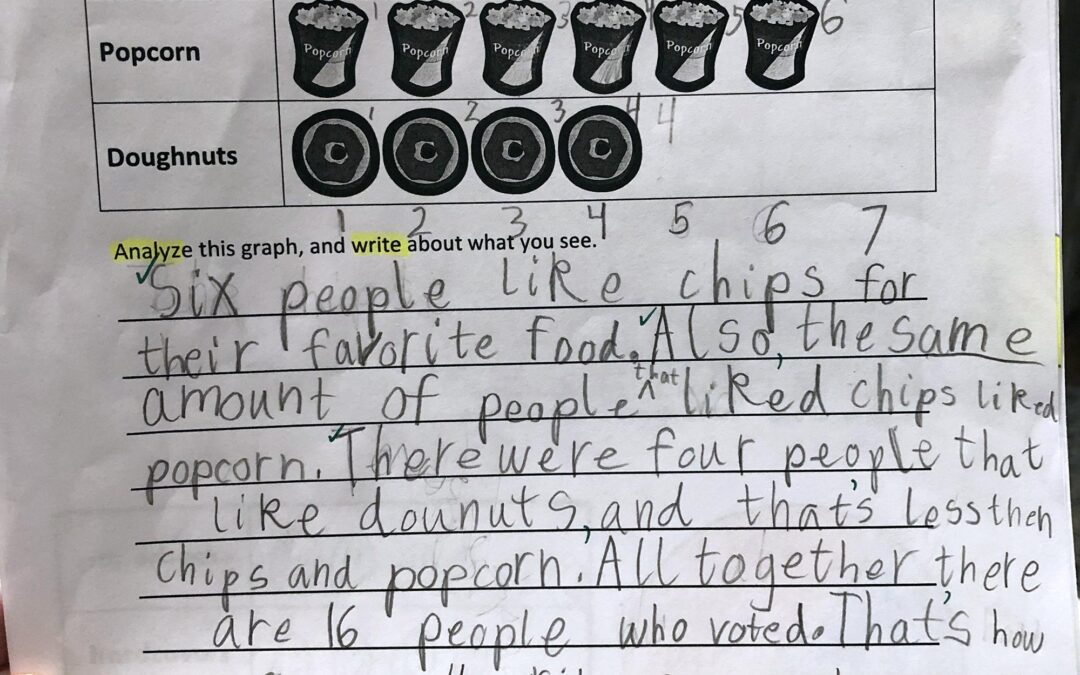 Popcorn Popcorn Popcorn Popcorn Popcorn Popcorn Popcorn
1 2 3 4 5 6
Doughnuts 1 2 3 4 4
1 2 3 4 5 6 7
Analyze this graph, and write about what you see.
Six people like chips for
their favorite food. Also, the same
amount of people that liked chips liked
popcorn. There were four people that
like dounuts, and that's less then
chips and popcorn. All together there
are 16 people who voted. That's how